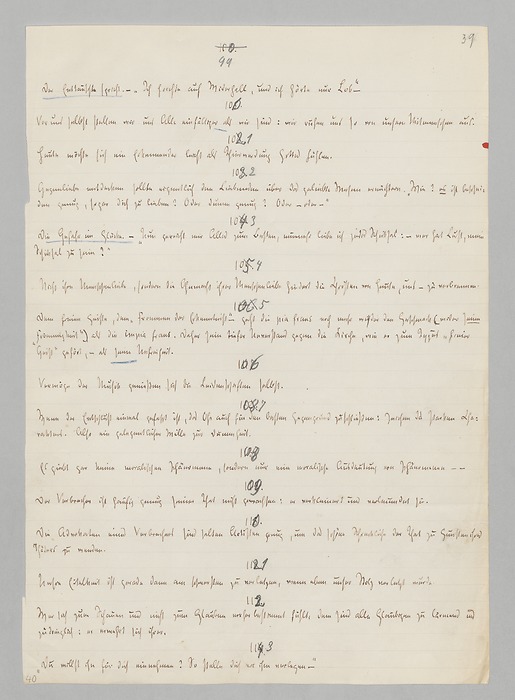 99
39
Der Enttäuschte spricht. — „Ich horchte auf Widerhall, und ich hörte nur Lob —"
100.
Vor uns selbst stellen wir uns Alle einfältiger als wir sind: wir ruhen uns so von unsern Mitmenschen aus.
101
Heute möchte sich ein Erkennender leicht als Thierwerdung Gottes fühlen.
102
Gegenliebe entdecken sollte eigentlich den Liebenden über das geliebte Wesen ernüchtern. „Wie? es ist beschei-
den genug, sogar dich zu lieben? Oder dumm genug? Oder — oder —"
103
Die Gefahr im Glücke. — „Nun gereicht mir Alles zum Besten, nunmehr liebe ich jedes Schicksal: — wer hat Lust, mein
Schicksal zu sein?"
104
Nicht ihre Menschenliebe, sondern die Ohnmacht ihrer Menschenliebe hindert die Christen von heute, uns — zu verbrennen.
105
Dem freien Geiste, dem „Frommen der Erkenntniss" — geht die pia fraus noch mehr wider den Geschmack (wider seine
„Frömmigkeit") als die impia fraus. Daher sein tiefer Unverstand gegen die Kirche, wie er zum Typus „freier
Geist" gehört, — als seine Unfreiheit.
106
Vermöge der Musik geniessen sich die Leidenschaften selbst.
107
Wenn der Entschluss einmal gefasst ist, das Ohr auch für den besten Gegengrund zu schliessen: Zeichen des starken Cha-
rakters. Also ein gelegentlicher Wille zur Dummheit.
108
Es giebt gar keine moralischen Phänomene, sondern nur eine moralische Ausdeutung von Phänomenen — —
109.
Der Verbrecher ist häufig genug seiner That nicht gewachsen: er verkleinert und verleumdet sie.
110.
Die Advokaten eines Verbrechers sind selten Artisten genug, um das schöne Schreckliche der That zu Gunsten ihres
Thäters zu wenden.
111
Unsre Eitelkeit ist gerade dann am schwersten zu verletzen, wenn eben unser Stolz verletzt wurde.
112
Wer sich zum Schauen und nicht zum Glauben vorherbestimmt fühlt, dem sind alle Gläubigen zu lärmend und
zudringlich: er erwehrt sich ihrer.
113
„Du willst ihn für dich einnehmen? So stelle dich vor ihm verlegen —"
40